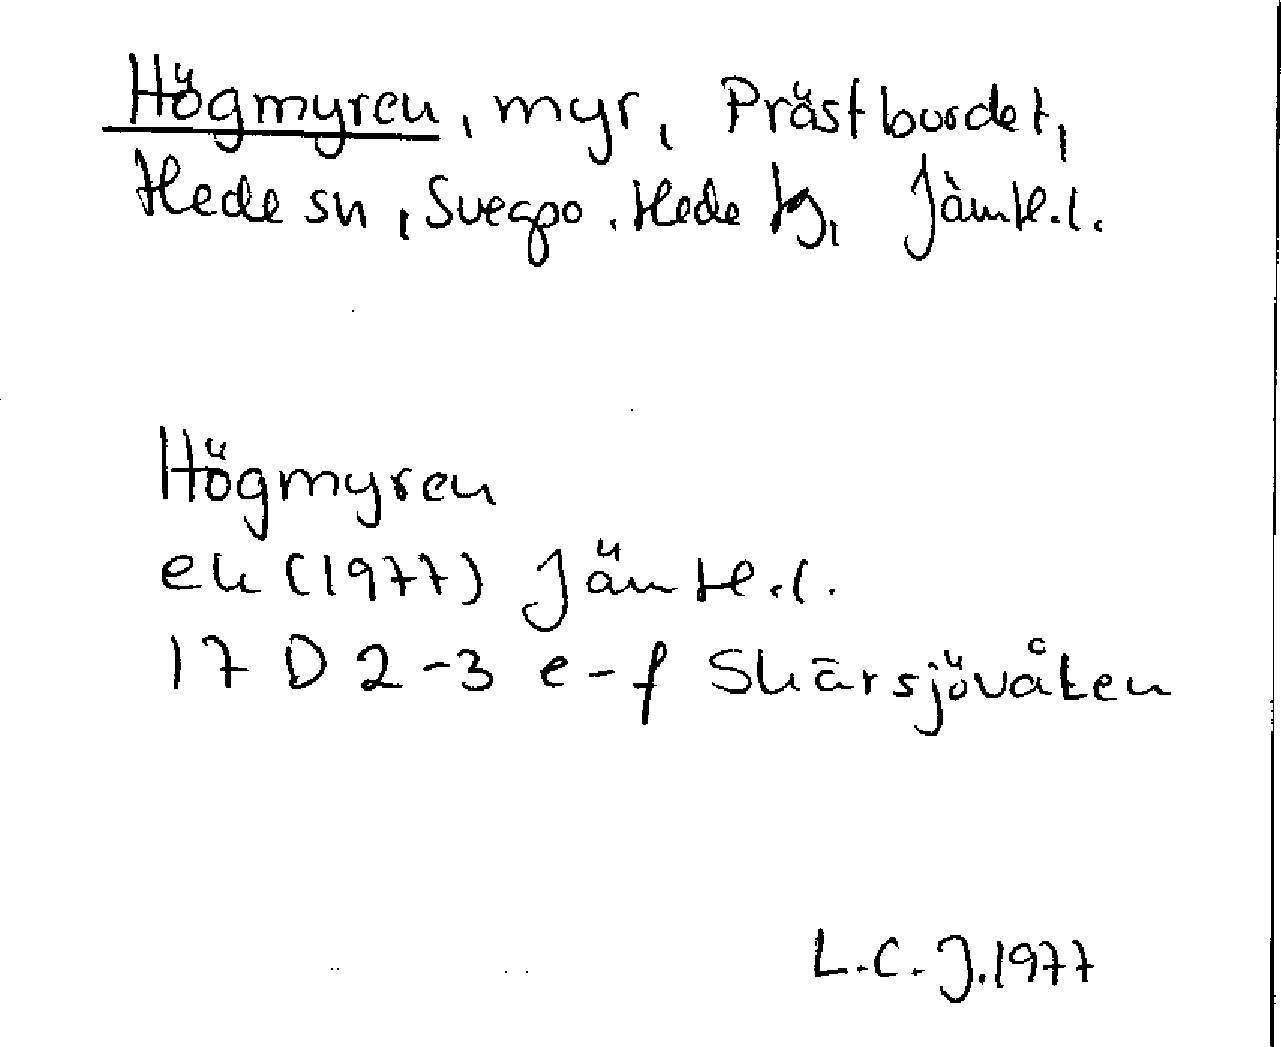 Högmyren, myr, Prästbordet,
Hede sn, Svegso. Hede tg, Jämtl.l.
Högmyren
ek (1977) Jämtl.l.
17 D 2-3 e-f Skärsjövålen
L.C.J. 1977